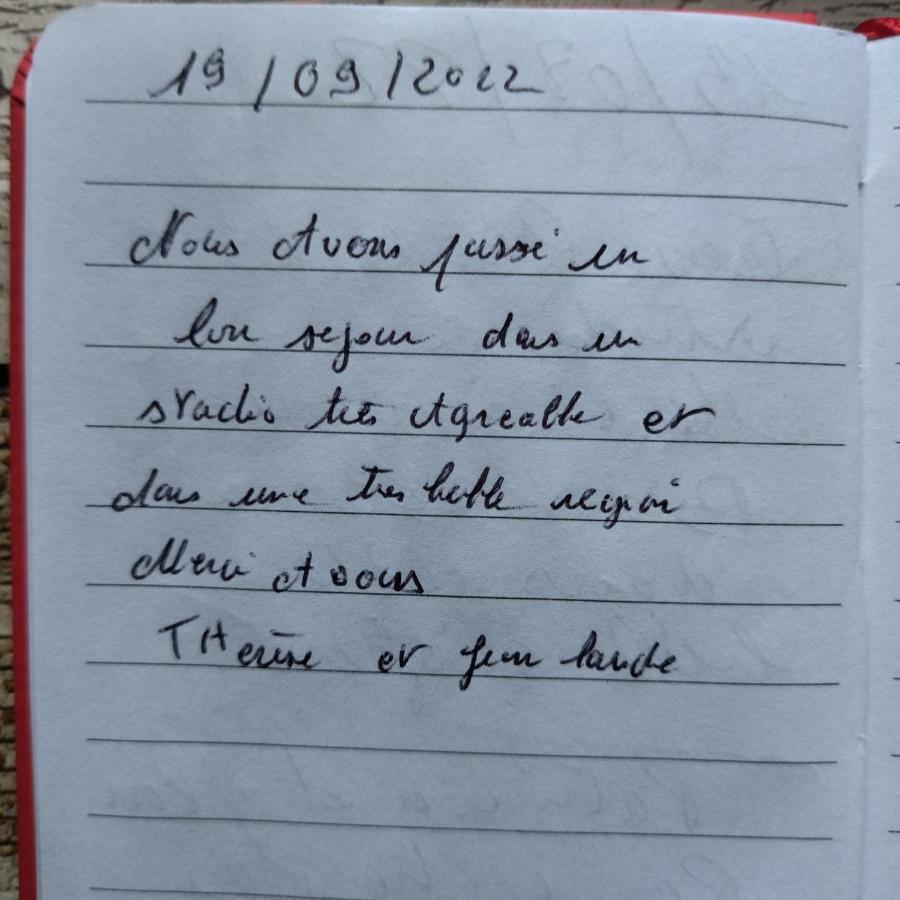 19/09/2022
Nous Avons passé un
bon sejour dans un
studio très Agreable et
dans une tres belle region
Merci A vous
THerèse et Jean